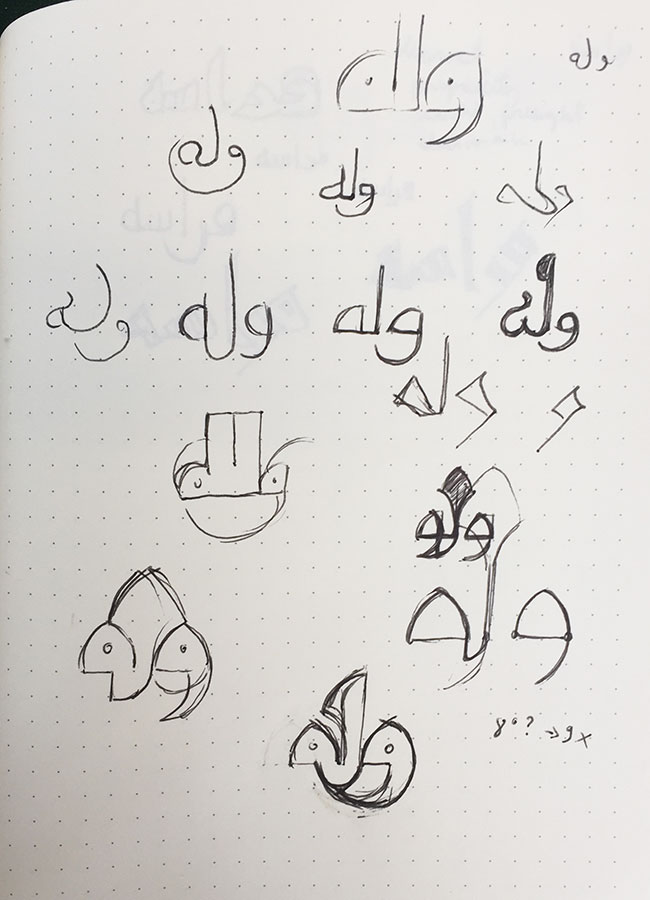 وله وله
وله وله وله
وله وله وله وله
و وله
وله